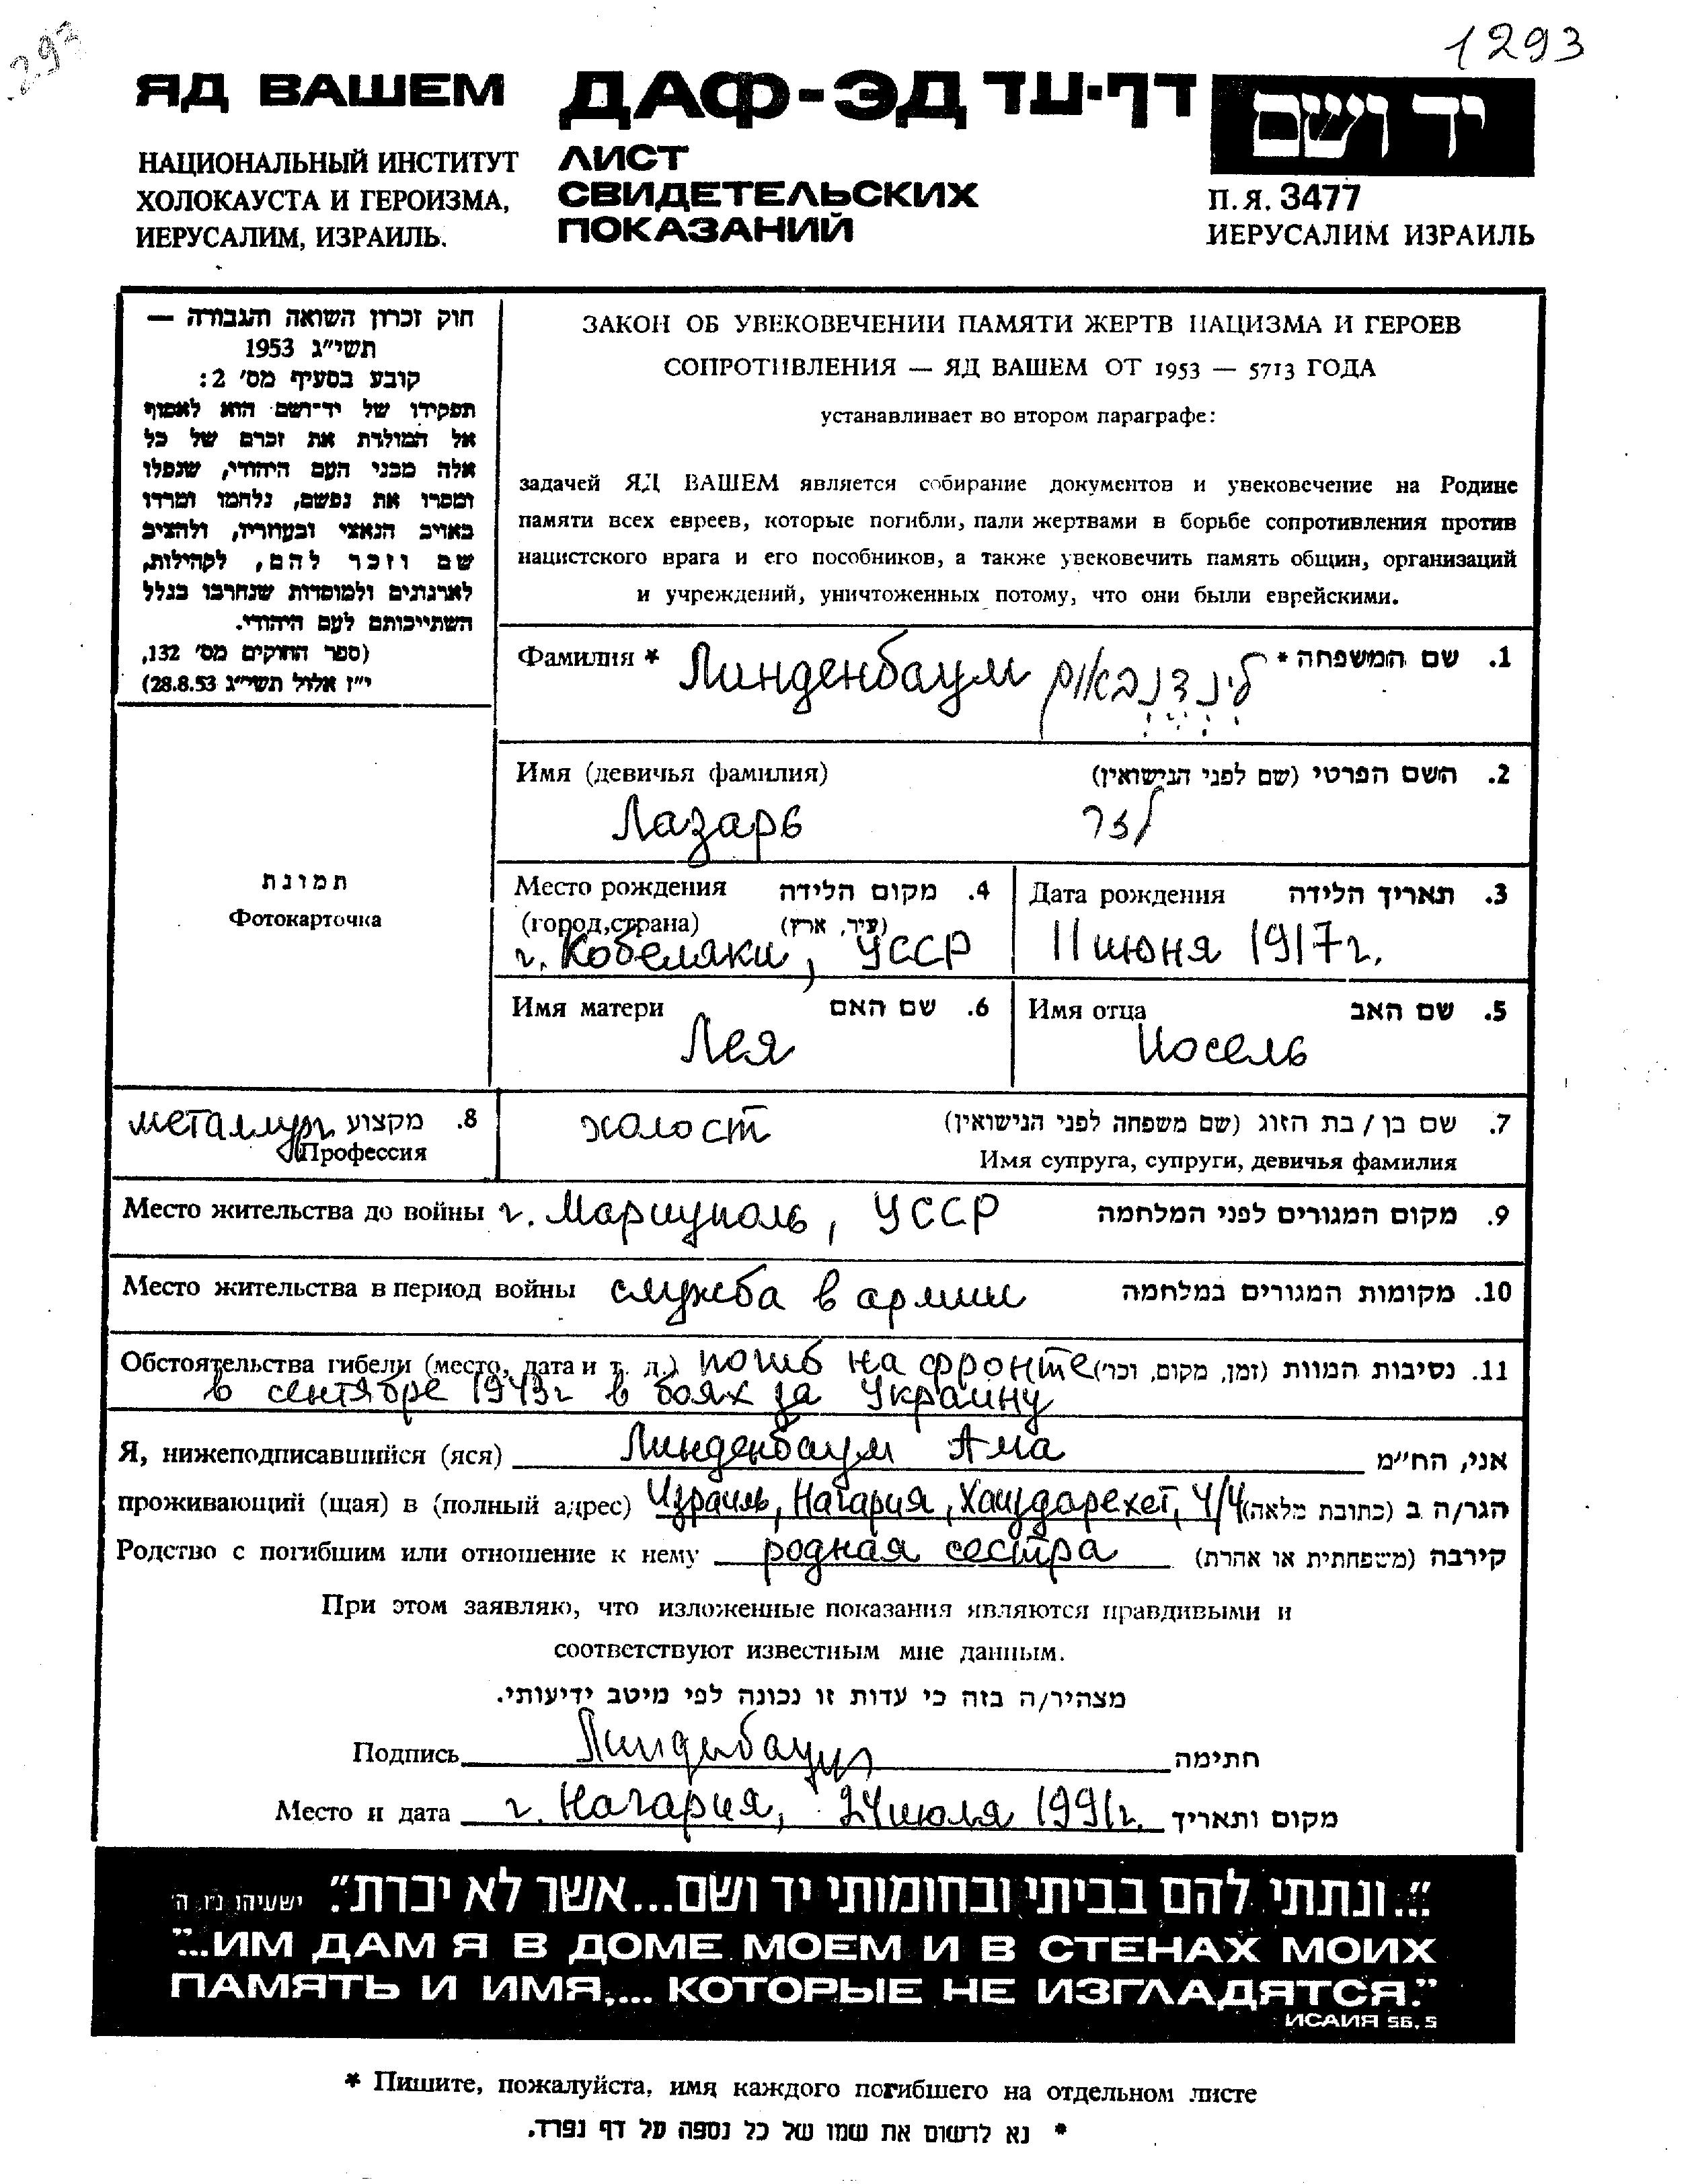 1293
ЯД ВАШЕМ ДАФ-ЭД דף-עד יד ושם
НАЦИОНАЛЬНЫЙ ИНСТИТУТ
ХОЛОКАУСТА И ГЕРОИЗМА,
ИЕРУСАЛИМ, ИЗРАИЛЬ.
ЛИСТ
СВИДЕТЕЛЬСКИХ
ПОКАЗАНИЙ
П.Я. 3477
ИЕРУСАЛИМ ИЗРАИЛЬ
חוק זכרון השואה והגבורה —
תשי״ג 1953
קובע בסעיף מס׳ 2:
תפקידו של יד־ושם הוא לאסוף
אל המולדת את זכרם של כל
אלה מבני העם היהודי, שנפלו
ומסרו את נפשם, נלחמו ומרדו
באויב הנאצי ובעוזריו, ולהציב
שם וזכר להם, לקהילות,
לארגונים ולמוסדות שנחרבו בגלל
השתייכותם לעם היהודי.
(ספר החוקים מס׳ 132,
י״ז אלול תשי״ג 28.8.53)
ЗАКОН ОБ УВЕКОВЕЧЕНИИ ПАМЯТИ ЖЕРТВ НАЦИЗМА И ГЕРОЕВ
СОПРОТИВЛЕНИЯ — ЯД ВАШЕМ ОТ 1953 — 5713 ГОДА
устанавливает во втором параграфе:
задачей ЯД ВАШЕМ является собирание документов и увековечение на Родине
памяти всех евреев, которые погибли, пали жертвами в борьбе сопротивления против
нацистского врага и его пособников, а также увековечить память общин, организаций
и учреждений, уничтоженных потому, что они были еврейскими.
Фамилия * Линденбаум לינדנבאום 1. שם המשפחה *
Имя (девичья фамилия) 2. השם הפרטי (שם לפני הנישואין)
Лазарь לזר
תמונת
Фотокарточка
Место рождения 4. מקום הלידה
(город,страна) (עיר, ארץ)
г. Кобеляки, УССР
Дата рождения 3. תאריך הלידה
11 июня 1917г.
Имя матери 6. שם האם
Лея
Имя отца 5. שם האב
Иосель
металлург 8. מקצוע
Профессия
холост 7. שם בן / בת הזוג (שם משפחה לפני הנישואין)
Имя супруга, супруги, девичья фамилия
Место жительства до войны г. Мариуполь, УССР 9. מקום המגורים לפני המלחמה
Место жительства в период войны служба в армии 10. מקומות המגורים במלחמה
Обстоятельства гибели (место, дата и т. д.) погиб на фронте 11. נסיבות המוות (זמן, מקום, וכו׳)
в сентябре 1943г в боях за Украину
Я, нижеподписавшийся (яся) Линденбаум Ама אני, הח״מ
проживающий (щая) в (полный адрес) Израиль, Нагария, 4/4 הגר/ה ב (כתובת מלאה)
Родство с погибшим или отношение к нему родная сестра קירבה (משפחתית או אחרת)
При этом заявляю, что изложенные показания являются правдивыми и
соответствуют известным мне данным.
מצהיר/ה בזה כי עדות זו נכונה לפי מיטב ידיעותי.
Подпись Линденбаум חתימה
Место и дата г. Нагария, 24 июля 1991г. מקום ותאריך
״...ונתתי להם בביתי ובחומותי יד ושם...אשר לא יכרת״. ישעיהו נ״ו ה׳
"...ИМ ДАМ Я В ДОМЕ МОЕМ И В СТЕНАХ МОИХ
ПАМЯТЬ И ИМЯ,... КОТОРЫЕ НЕ ИЗГЛАДЯТСЯ."
ИСАИЯ 56, 5
* Пишите, пожалуйста, имя каждого погибшего на отдельном листе
* נא לרשום את שמו של כל נספה על דף נפרד.